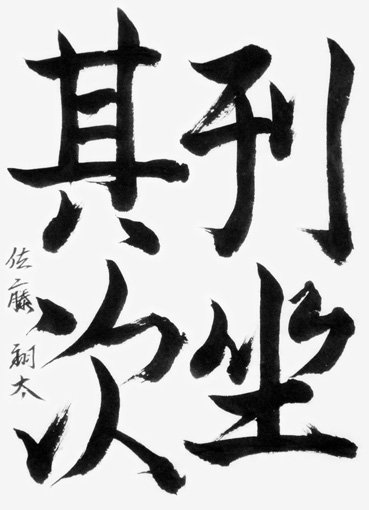 列坐
其次
佐藤 翔太